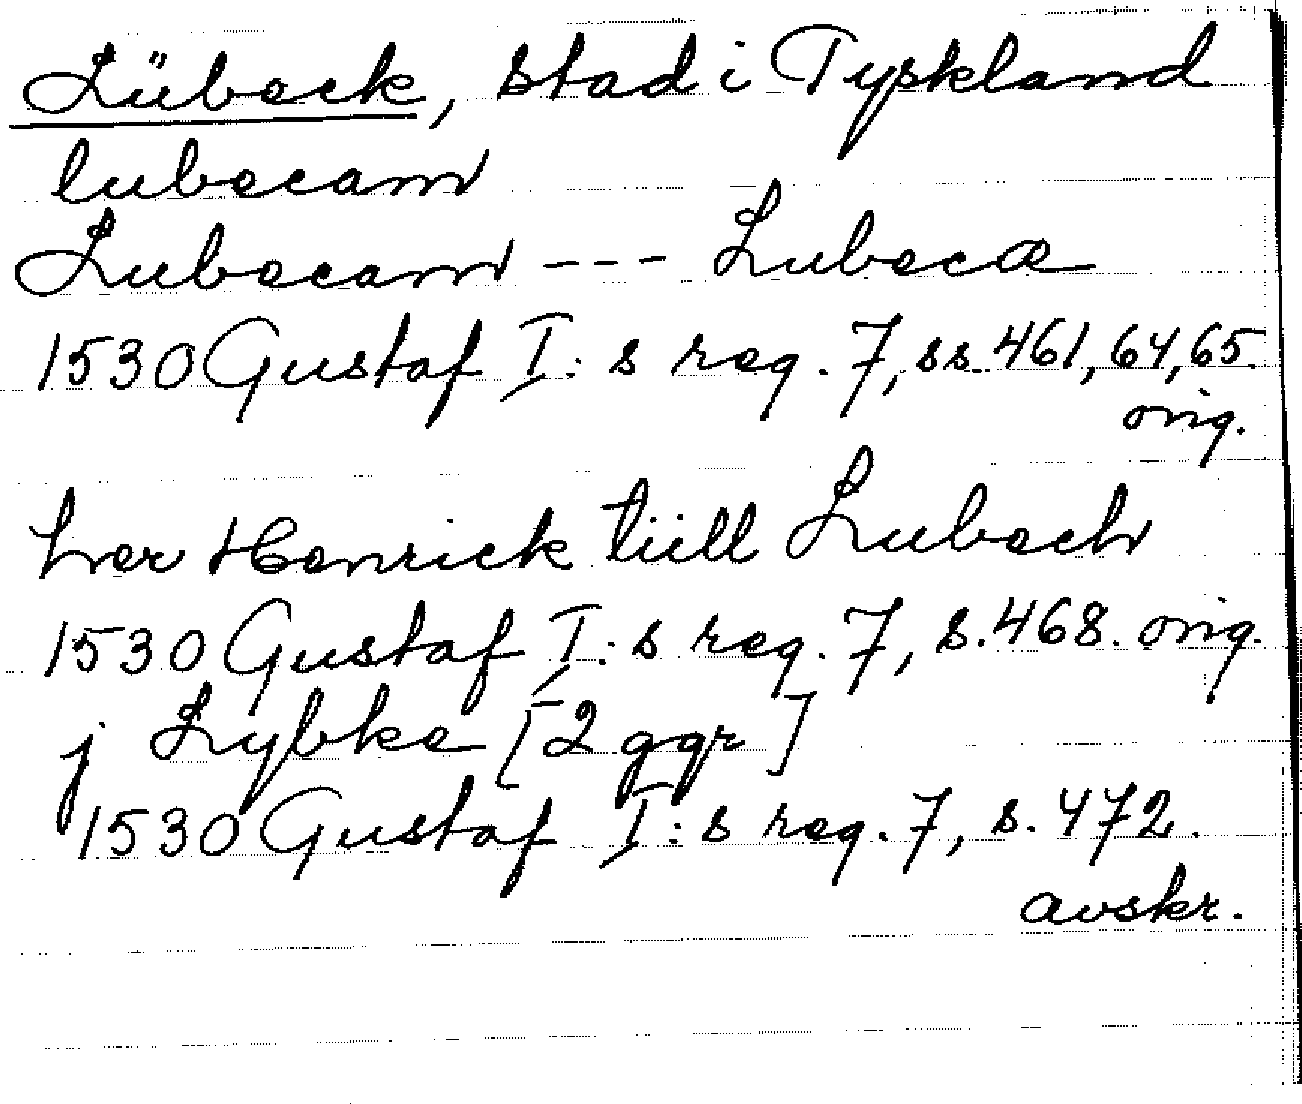 Lübeck, stad i Tyskland
lubecam
Lubecam --- Lubecæ
1530 Gustaf I:s reg. 7, ss. 461, 64, 65.
orig.
her Henrick tiill Lubech
1530 Gustaf I:s reg. 7, s. 468. orig.
j Lybke [2 ggr]
1530 Gustaf I:s reg. 7, s. 472.
avskr.